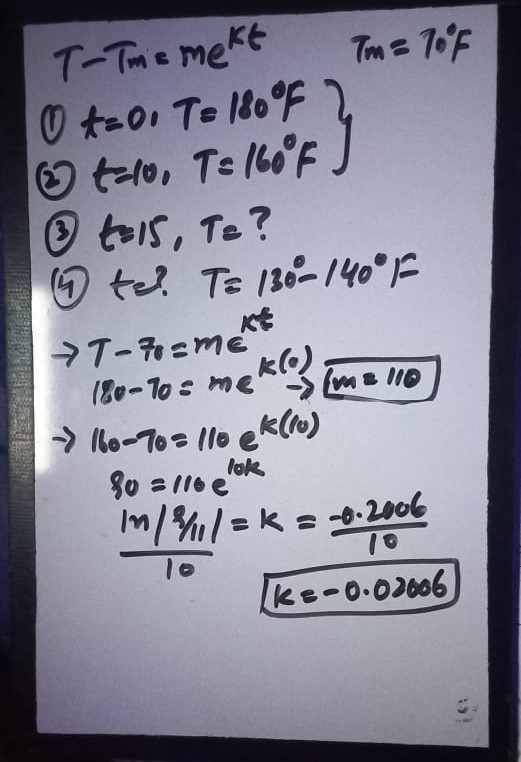 T-Tm = me^kt Tm = 70°F
① t=0, T= 180°F }
② t=10, T= 160°F
③ t=15, T= ?
④ t=? T= 130°-140°F
→ T-70 = me^kt
180-70 = me^k(0) → m = 110
→ 160-70 = 110 e^k(10)
90 = 110 e^10k
ln|9/11| / 10 = k = -0.2006 / 10
k = -0.02006